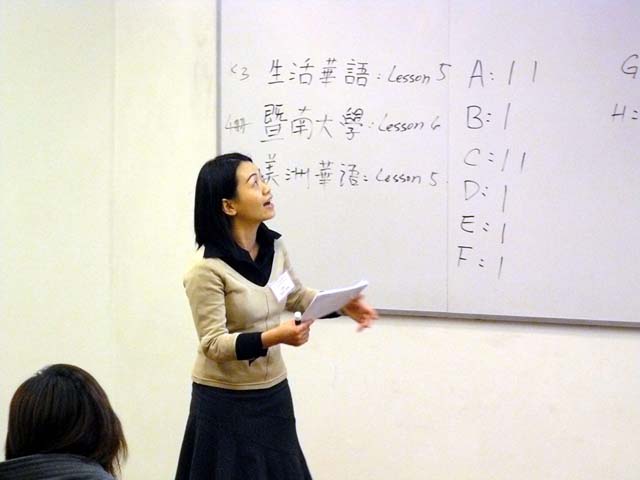 生活華語: Lesson 5
4冊 暨南大學: Lesson 6
美洲華語: Lesson 5
A: 11
B: 1
C: 11
D: 1
E: 1
F: 1
G
H: